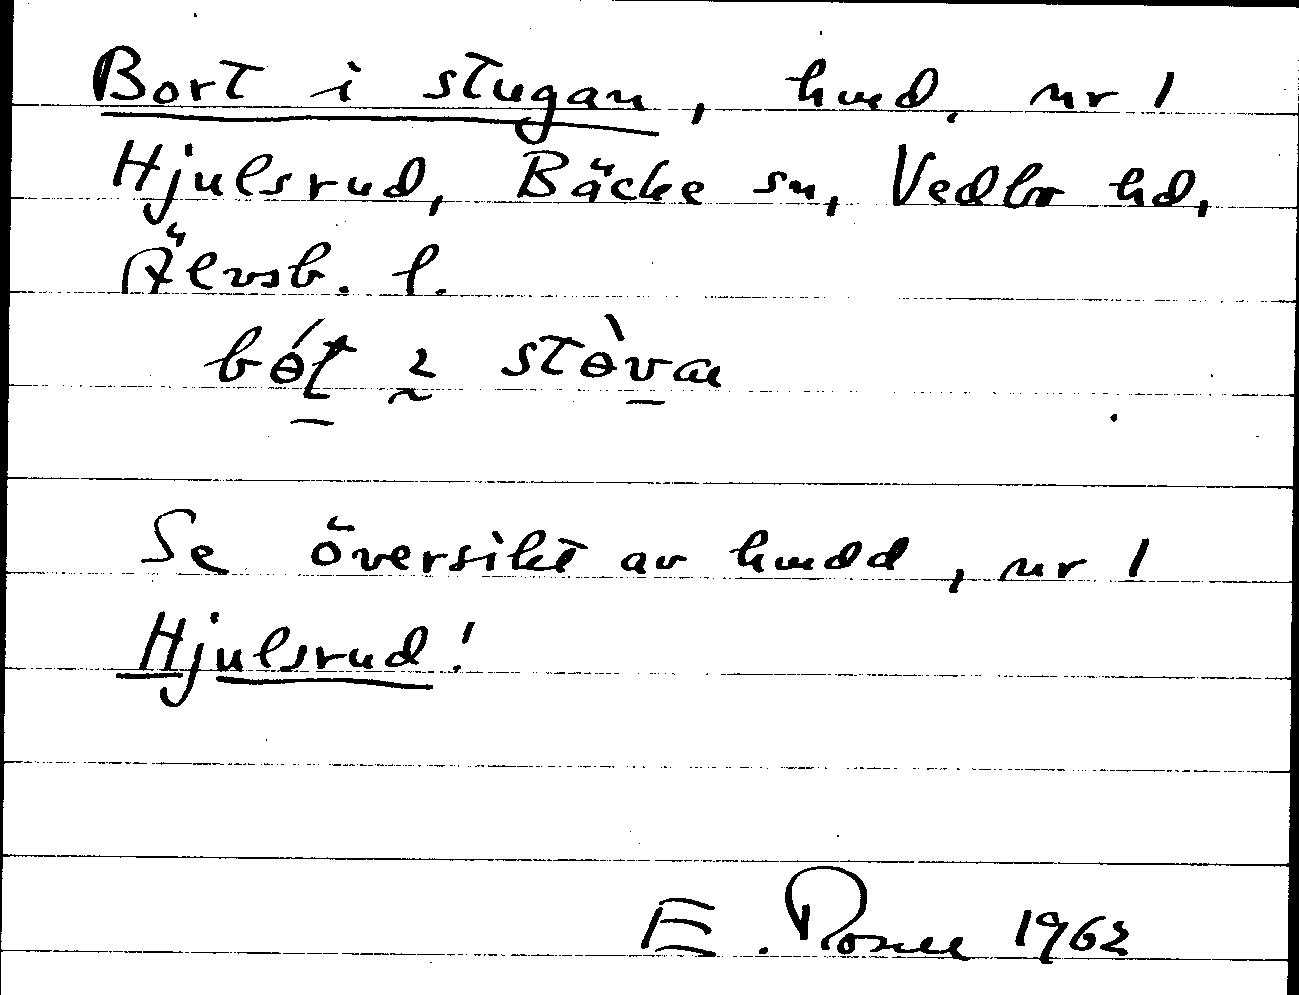 Bort i stugan, hmd. nr 1
Hjulsrud, Bäcke sn, Vedbo hd,
Älvsb. l.
Se översikt av hmdd, nr 1
Hjulsrud!
E. Rosell 1962